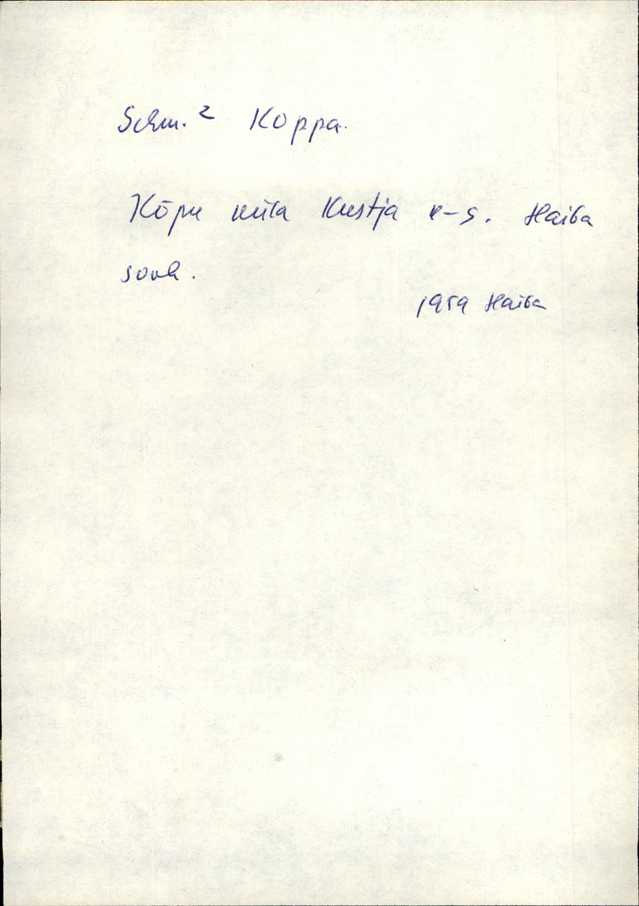 Schm.² Koppa.
Kõpu küla Kustja v-s. Haiba
sovh.
1959 Haiba